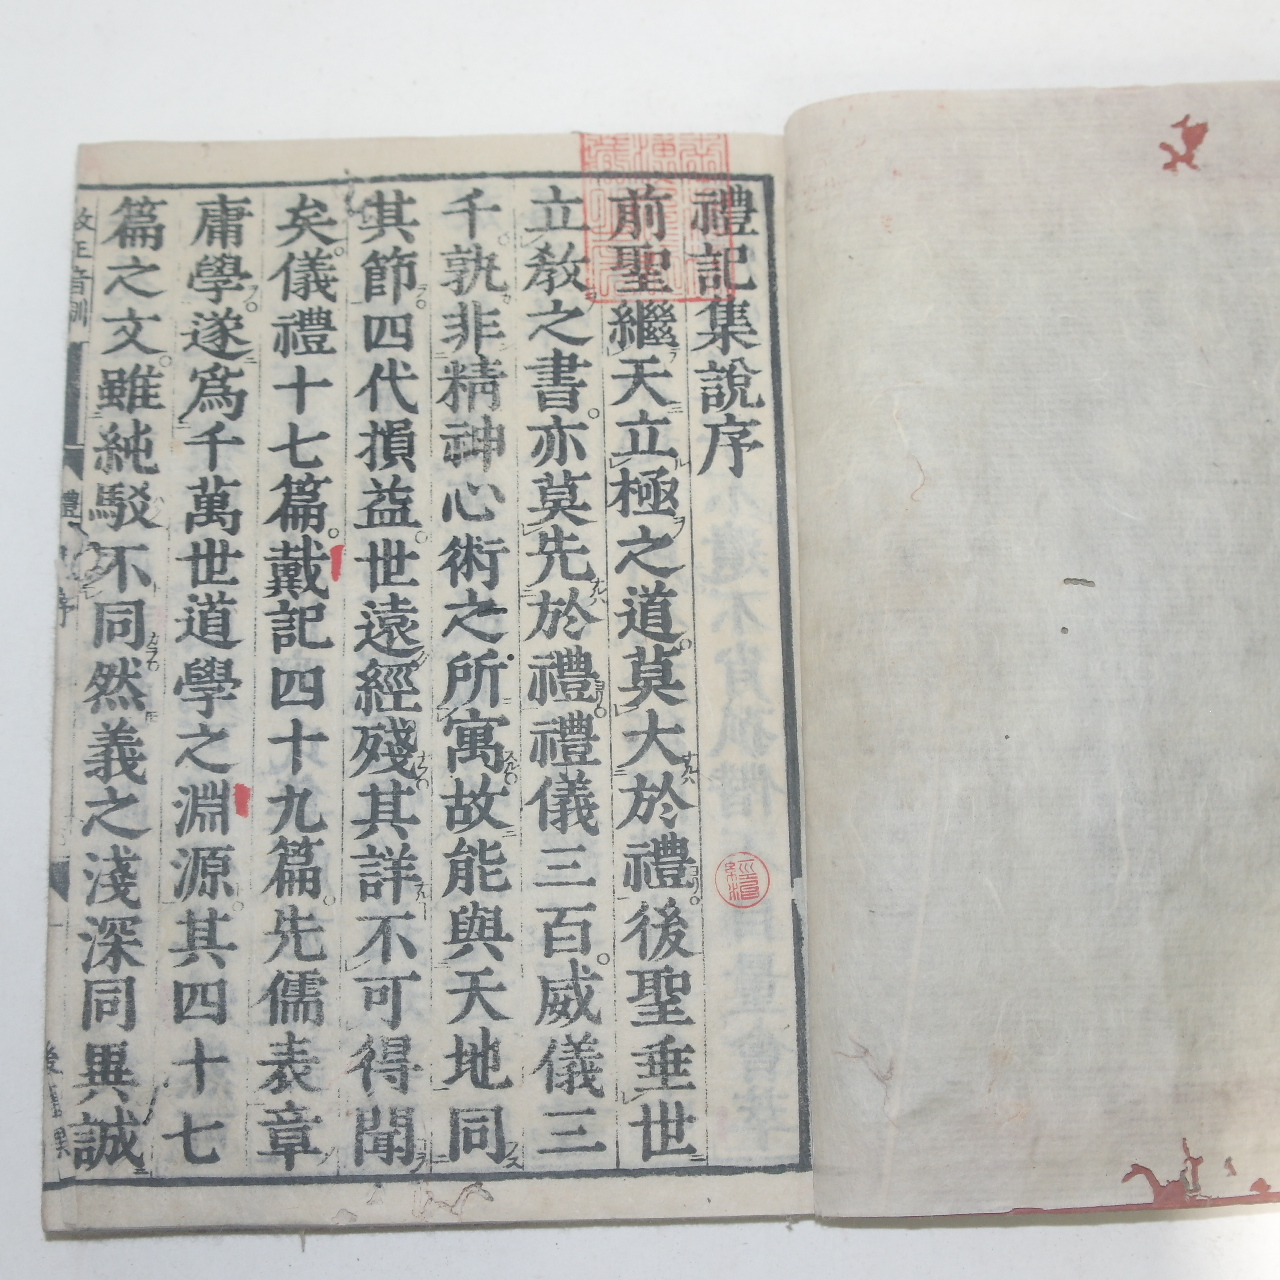 禮記集說序
前聖繼天立極之道莫大於禮後聖垂世
立教之書亦莫先於禮禮儀三百威儀三
千孰非精神心術之所寓故能與天地同
其節四代損益世遠經殘其詳不可得聞
矣儀禮十七篇戴記四十九篇先儒表章
庸學遂爲千萬世道學之淵源其四十七
篇之文雖純駁不同然義之淺深同異誠
改正音訓
禮記序